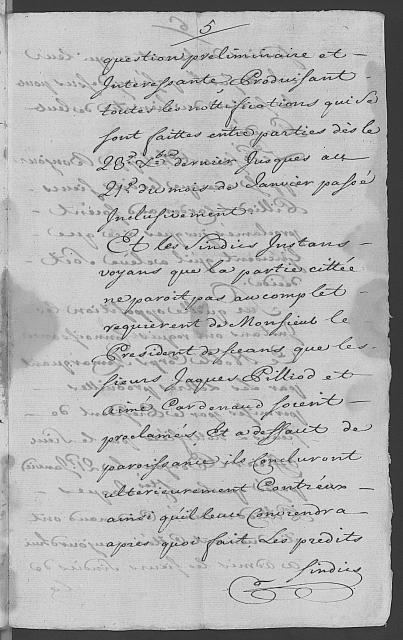 5
question préliminaire et
Interessante, Produisant
toutes les nottifications qui se
sont faittes entre parties dès le
23e dernier Jusques au
21e du mois de Janvier passé
Inclusivement
Et les Sindics Instans
voyans que la partie cittée
ne paroit pas au complet
requierent de Monsieur le
President de sceans que les
sieurs Jaques Pilliod et
aimé Cardenaud soient
proclamés Et a deffaut de
paroissance ils Concluront
ulterieurement Contréux
ainsi qu'il leur Conviendra
après quoi fait, Les predits
Sindics